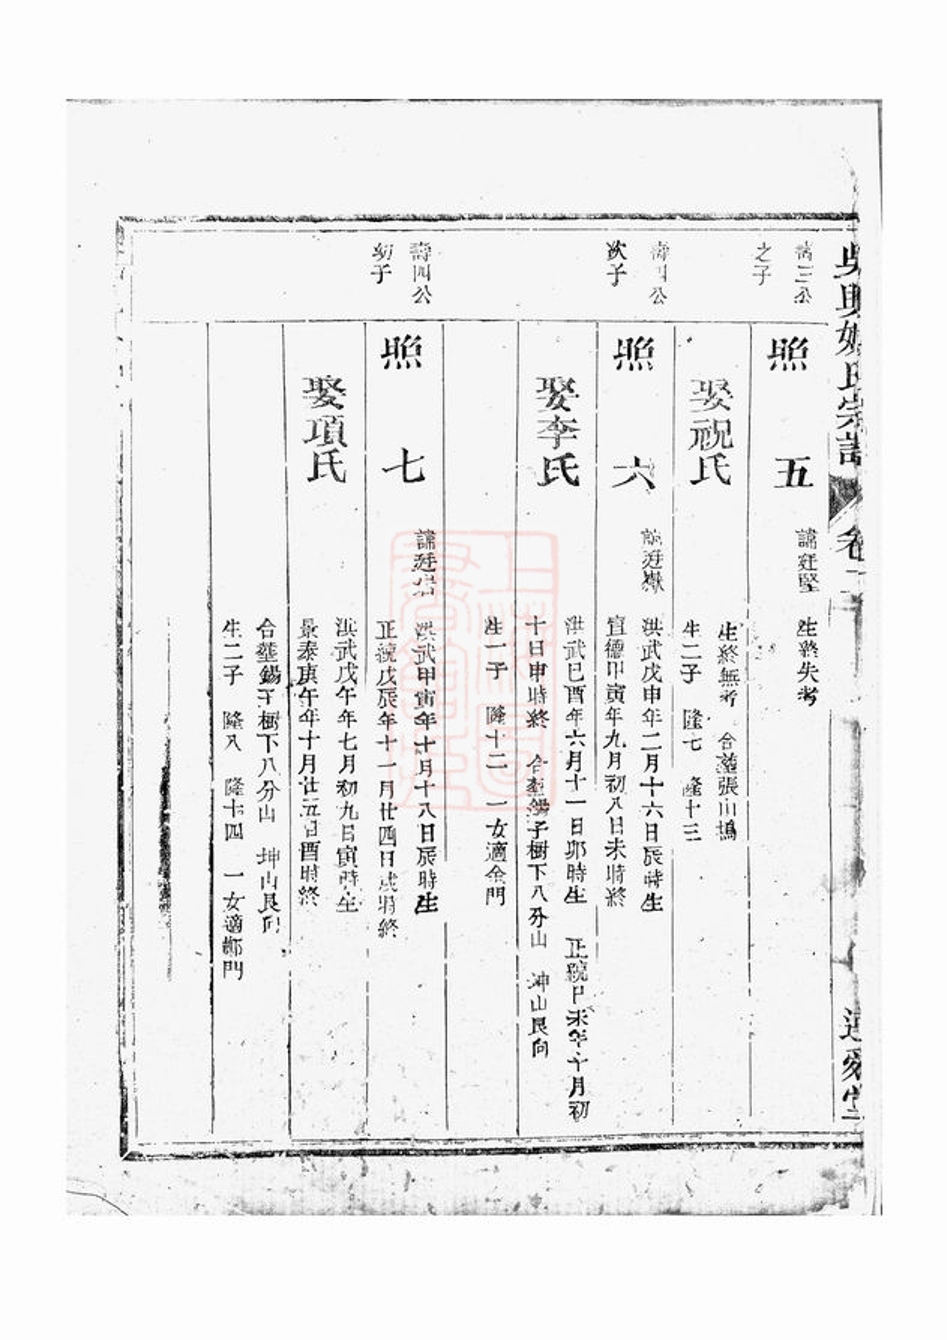 吳興姚氏宗譜
卷二
遺安堂
壽三公
之子
照五
諱廷堅
生終失考
娶祝氏
生終無考 合塟張山塢
生二子 隆七 隆十三
壽四公
次子
照六
諱廷嶽
洪武戊申年二月十六日辰時生
宣德甲寅年九月初八日未時終
娶李氏
洪武己酉年六月十一日卯時生 正統己未年十月初
十日申時終 合塟錫子樹下八分山 坤山艮向
生一子 隆十二 一女適金門
壽四公
幼子
照七
諱廷
洪武甲寅年十月十八日辰時生
正統戊辰年十一月廿四日戌時終
娶項氏
洪武戊午年七月初九日寅時生
景泰庚午年十月廿五日酉時終
合塟錫子樹下八分山 坤山艮向
生二子 隆八 隆十四 一女適鄭門